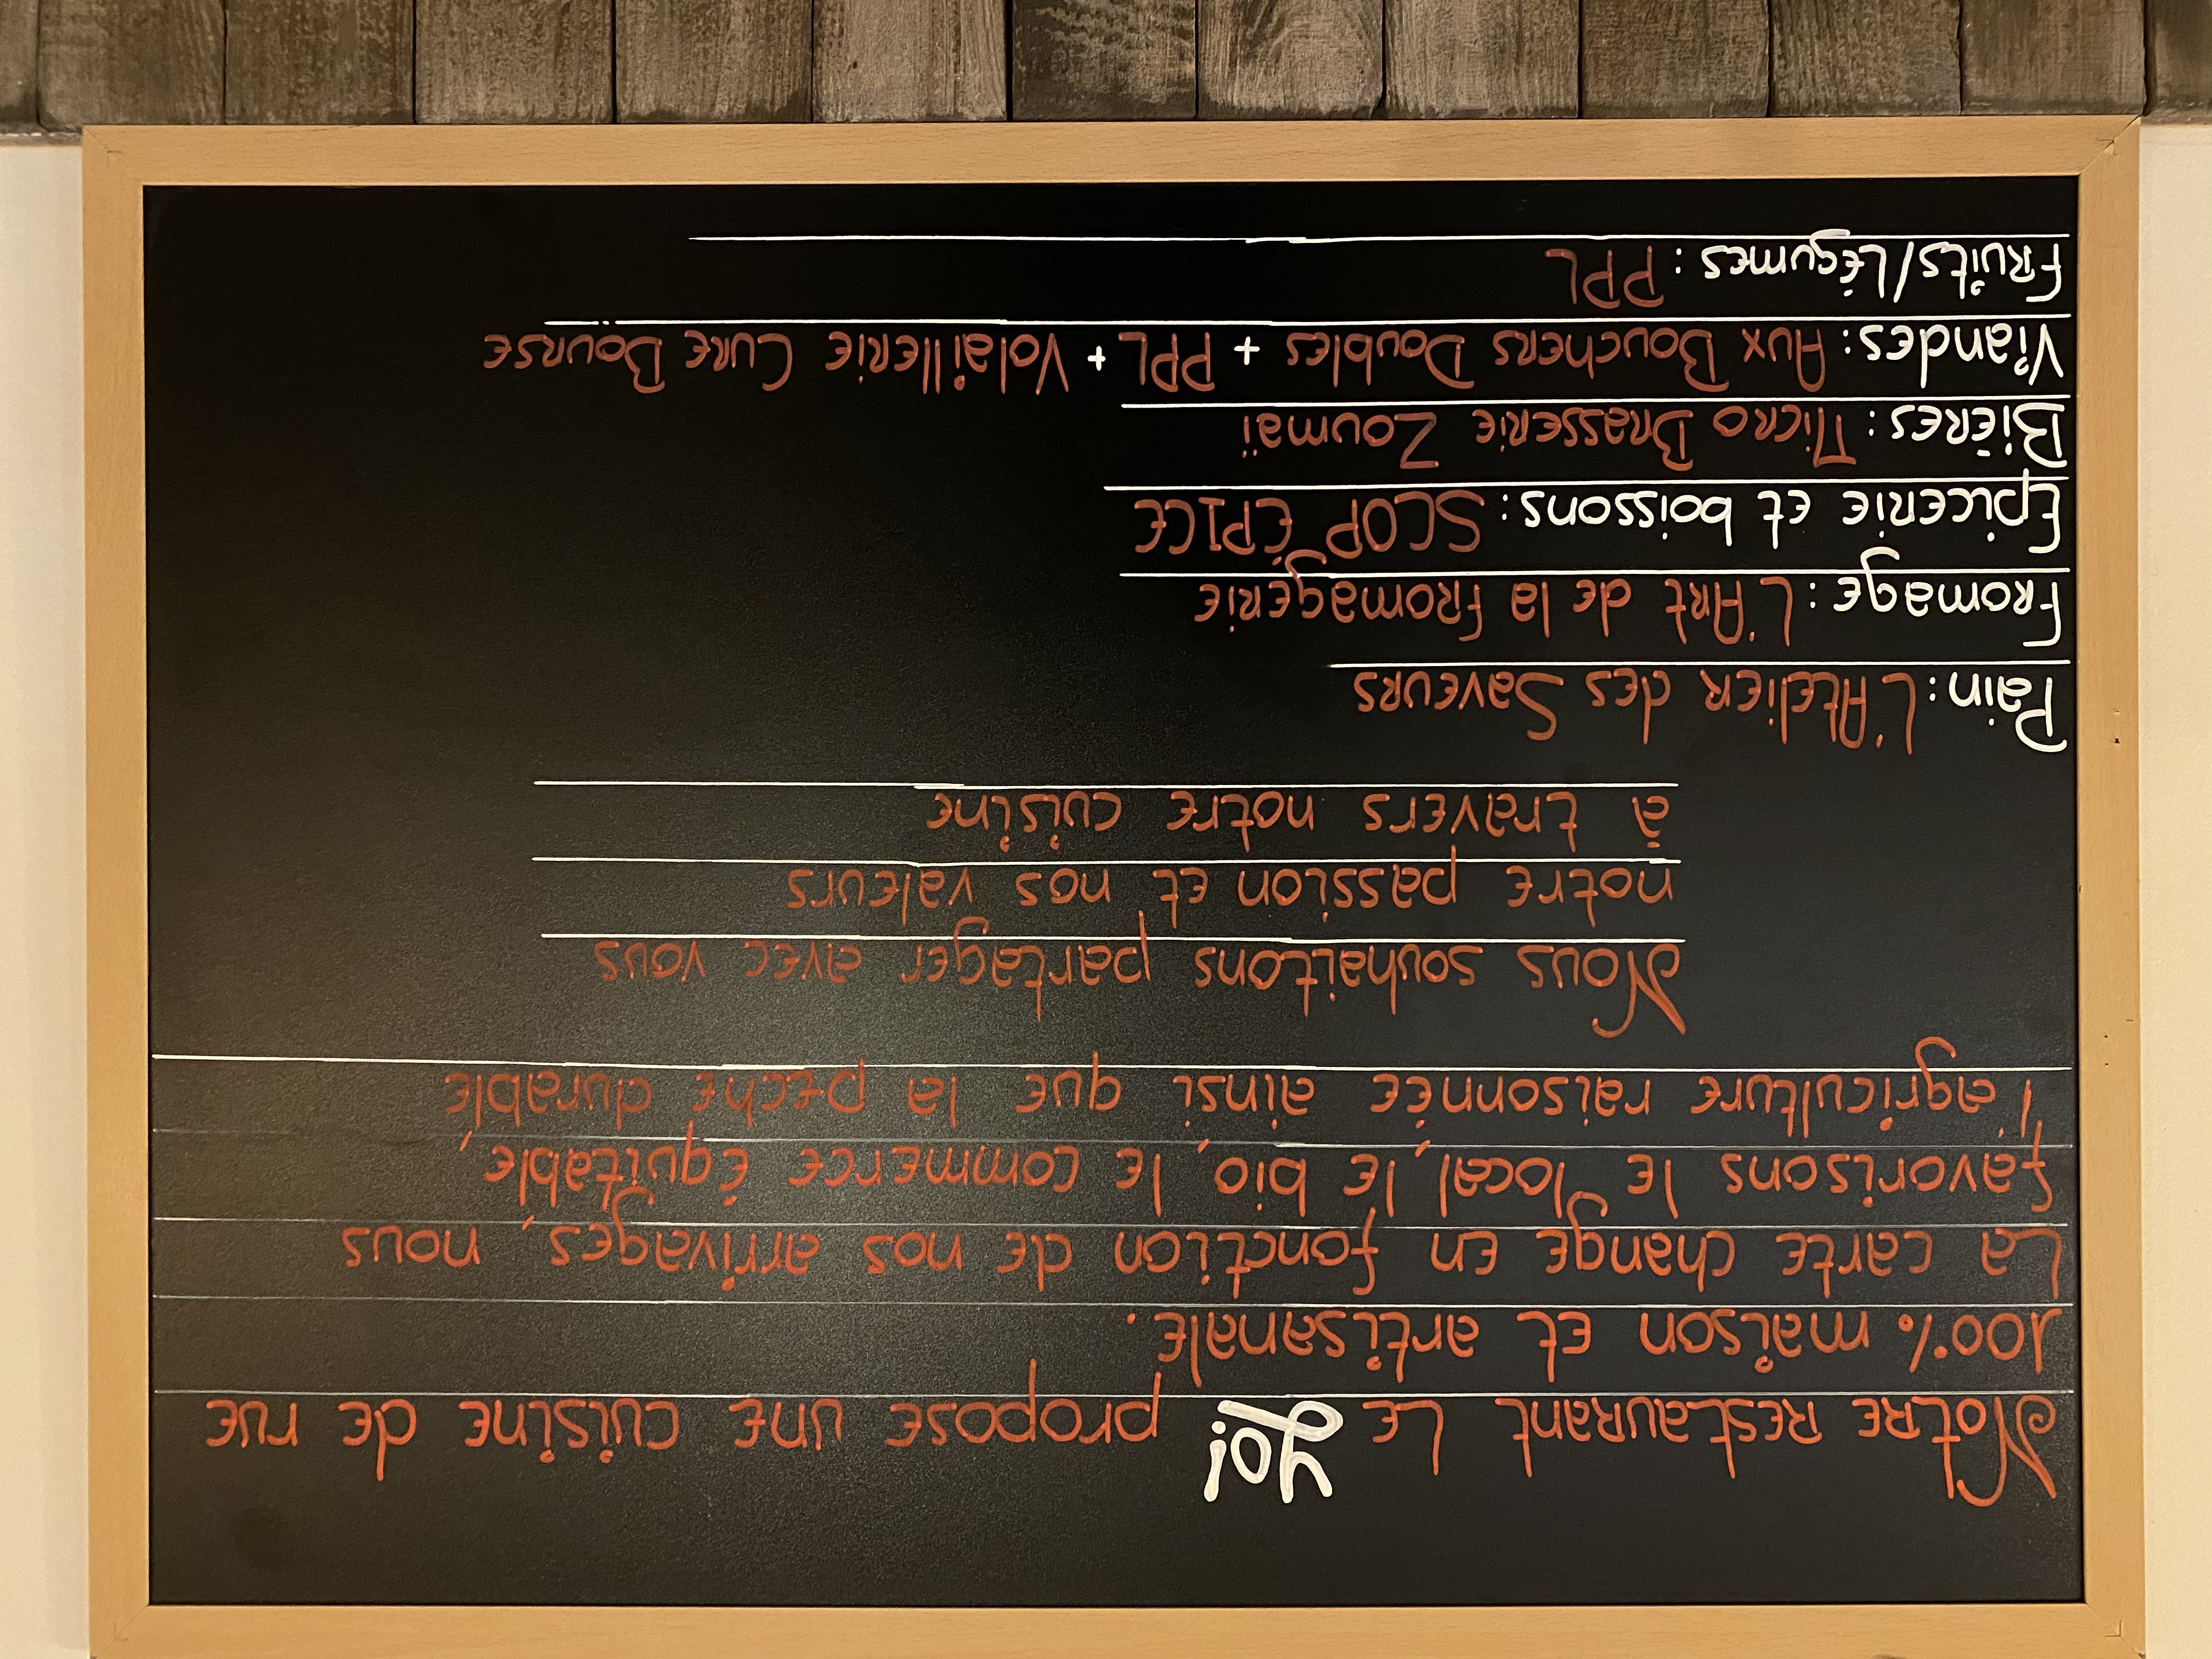 Notre restaurant Le Yoi propose une cuisine de rue
100% maison et artisanale.
La carte change en fonction de nos arrivages, nous
favorisons le local, le bio, le commerce équitable,
l'agriculture raisonnée ainsi que la pêche durable
Nous souhaitons partager avec vous
notre passion et nos valeurs
à travers notre cuisine
Pain: L'Atelier des Saveurs
Fromage: L'Art de la fromagerie
Épicerie et boissons: SCOP ÉPICE
Bières: Micro Brasserie Zoumaï
Viandes: Aux Bouchers Doubles + PPL + Volaillerie Cure Bourse
Fruits/Légumes: PPL